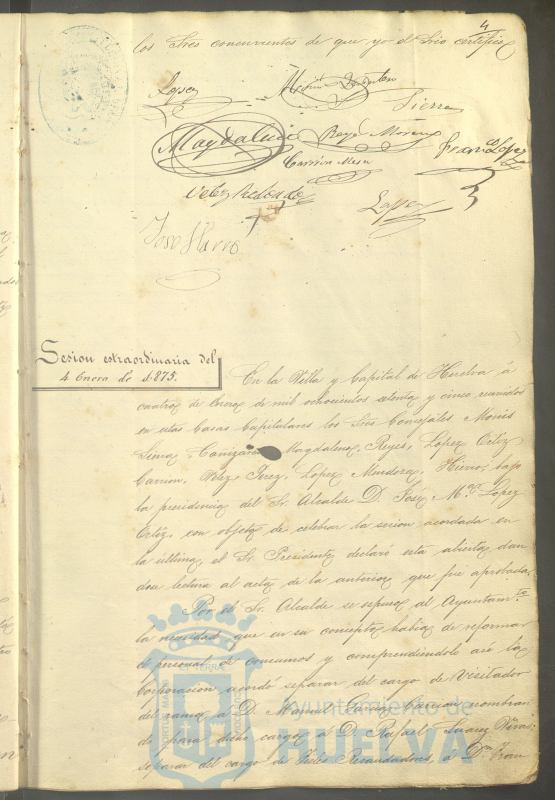 4
los Sres concurrentes de que yo el Srio certifico
Lopez
Sierra
Magdalena Reyes Moreno Fran.co Lopez
Carrion Mesa
Velez Redondo
Lopez
Jose Hierro
Sesion extraordinaria del
4 Enero de 1.875.
En la Villa y Capital de Huelva á
cuatro de Enero de mil ochocientos setenta y cinco reunidos
en estas Casas Capitulares los Sres Concejales Monis
Magdalena, Reyes, López Ortiz
Carrion, Velez, Perez, Lopez Mendoza, Hierro, bajo
la presidencia del Sr. Alcalde D. José M.ª Lopez
Ortiz, con objeto de celebrar la sesion acordada en
la última, el Sr. Presidente declaró esta abierta dan
dose lectura al acta de la anterior que fué aprobada.
Por el Sr. Alcalde se espuso al Ayuntam.to
la necesidad que en su concepto habia de reformar
el personal de consumos y comprendiendolo asi la
Corporacion acordó separar del cargo de Visitador
del ramo á D. Manuel Garcia y nombran
do para dicho cargo á D. Rafael Suarez
separar del cargo de Fieles Recaudadores, á D. Fran
Ayuntamiento de
HUELVA